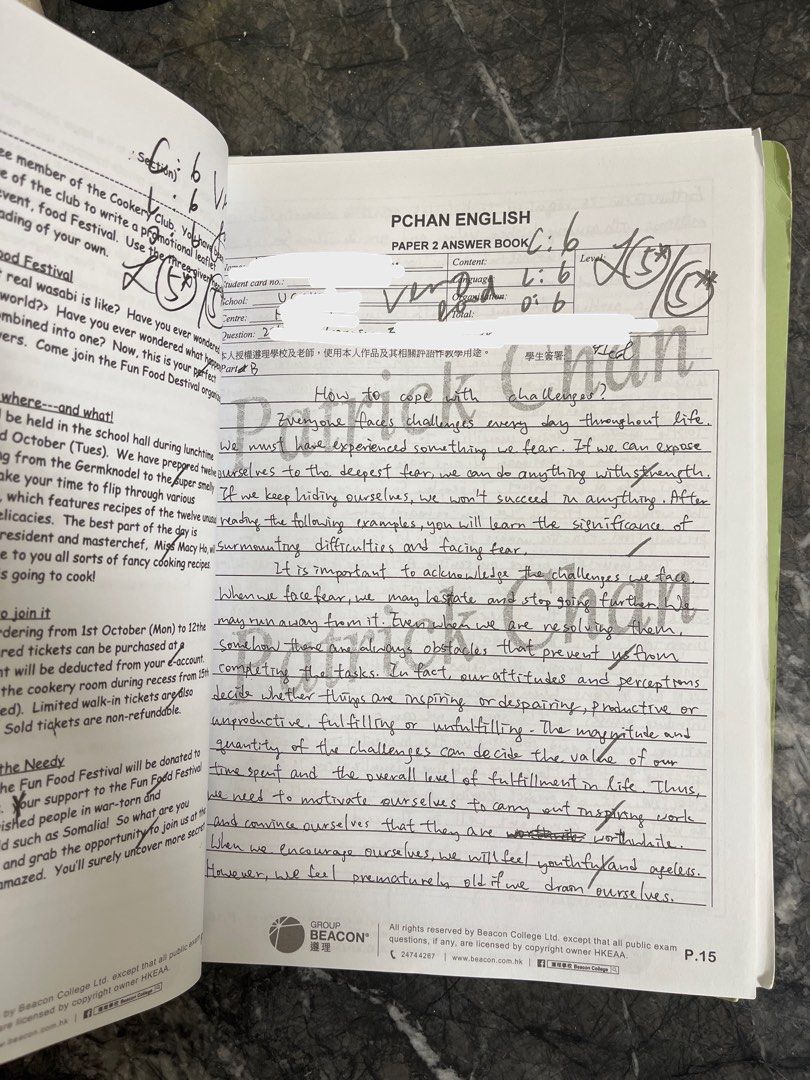 Section
C: 6
L: 6
ee member of the Cookery Club. You have
e of the club to write a promotional leaflet
event, food Festival. Use the three given
ading of your own.
5*
ood Festival
t real wasabi is like? Have you ever wondered
world?> Have you ever wondered what
ombined into one? Now, this is your perfect
vers. Come join the Fun Food Destival
where---and what!
l be held in the school hall during lunchtime
d October (Tues). We have prepared twelve
ng from the Germknodel to the super smelly
ake your time to flip through various
, which features recipes of the twelve unusual
elicacies. The best part of the day is
resident and masterchef, Miss Macy Ho, wi
e to you all sorts of fancy cooking recipes.
s going to cook!
o join it
rdering from 1st October (Mon) to 12the
red tickets can be purchased at
nt will be deducted from your e-account.
the cookery room during recess from 15th
ed). Limited walk-in tickets are also
Sold tickets are non-refundable.
the Needy
he Fun Food Festival will be donated to
Your support to the Fun Food Festival
ished people in war-torn and
d such as Somalia! So what are you
and grab the opportunity to join us at the
amazed. You'll surely uncover more secret
by Beacon College Ltd. except that all public exam
are licensed by copyright owner HKEAA.
w.beacon.com.hk | 遵理學校 Beacon College
PCHAN ENGLISH
PAPER 2 ANSWER BOOK
C: 6
Content:
Level:
5*/5**
Student card no.:
Language:
L: 6
School:
Very Good
Organisation:
O: 6
Centre:
Total:
Question:
本人授權遵理學校及老師，使用本人作品及其相關評語作教學用途。 學生簽署
Part B
Patrick Chan
How to cope with challenges?
Everyone faces challenges every day throughout life.
We must have experienced something we fear. If we can expose
ourselves to the deepest fear, we can do anything with strength.
If we keep hiding ourselves, we won't succeed in anything. After
reading the following examples, you will learn the significance of
surmounting difficulties and facing fear.
It is important to acknowledge the challenges we face.
When we face fear, we may hesitate and stop going further. We
may run away from it. Even when we are resolving them,
somehow there are always obstacles that prevent us from
Patrick Chan
completing the tasks. In fact, our attitudes and perceptions
decide whether things are inspiring or despairing, productive or
unproductive, fulfilling or unfulfilling. The magnitude and
quantity of the challenges can decide the value of our
time spent and the overall level of fulfillment in life. Thus,
we need to motivate ourselves to carry out inspiring work
and convince ourselves that they are worthwhile.
When we encourage ourselves, we will feel youthful and ageless.
However, we feel prematurely old if we drain ourselves.
GROUP
BEACON®
遵理
All rights reserved by Beacon College Ltd. except that all public exam
questions, if any, are licensed by copyright owner HKEAA.
24744267 | www.beacon.com.hk | 遵理學校 Beacon College
P.15